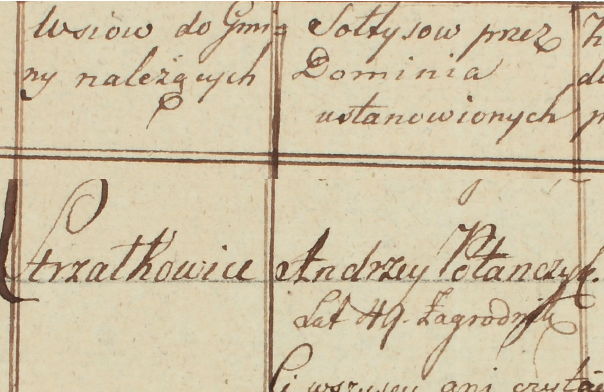 Wsiow do Gmi=
ny należących
Sołtysow przez
Dominia
ustanowionych
Strzałkowice
Andrzey Potanczyk.
Lat 49. Zagrodnik
Ci wszyscy ani czytać